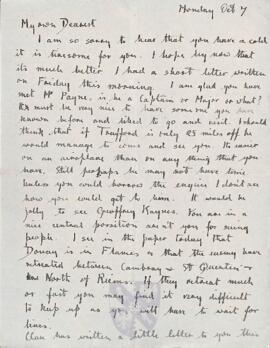 Monday Oct 7
My own Dearest
I am so sorry to hear that you have a cold
it is tiresome for you. I hope by now that
its much better. I had a short letter written
on Friday this morning. I am glad you have
met Mr Payne, is he a Captain or Major or what?
It must be very nice to have someone you have
known before and liked to go and visit. I should
think that if Trafford is only 25 miles off he
would manage to come and see you. Its easier
on an aeroplane than on any thing that you
have. Still perhaps he may not have time.
Unless you could borrow the engine I dont see
how you could get to him. It would be
jolly to see Geoffrey Keynes. You are in a
nice central position arn't you for seeing
people. I see in the paper today that
Douay is in Flames & that the enemy have
retreated between Cambray & St Quentin &
North of Riems. If they retreat much
or fast you may find it very difficult
to keep up as you will have to wait for
lines.
has written a little letter to you this